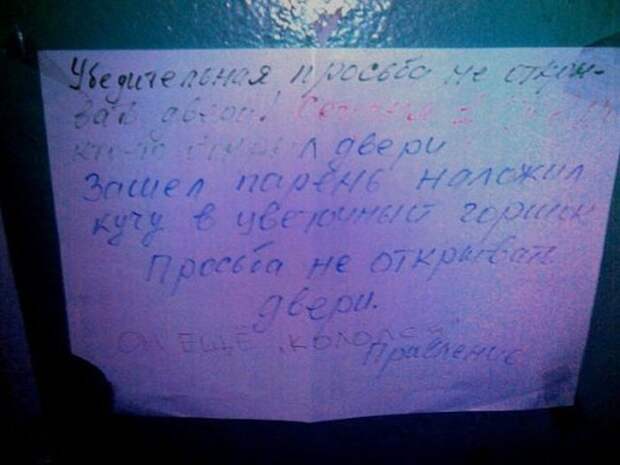 Убедительная просьба не откры-
вать двери!
кто-то открыл двери
Зашел парень наложил
кучу в цветочный горшок
Просьба не открывать
двери.
ОН ЕЩЁ
Правление